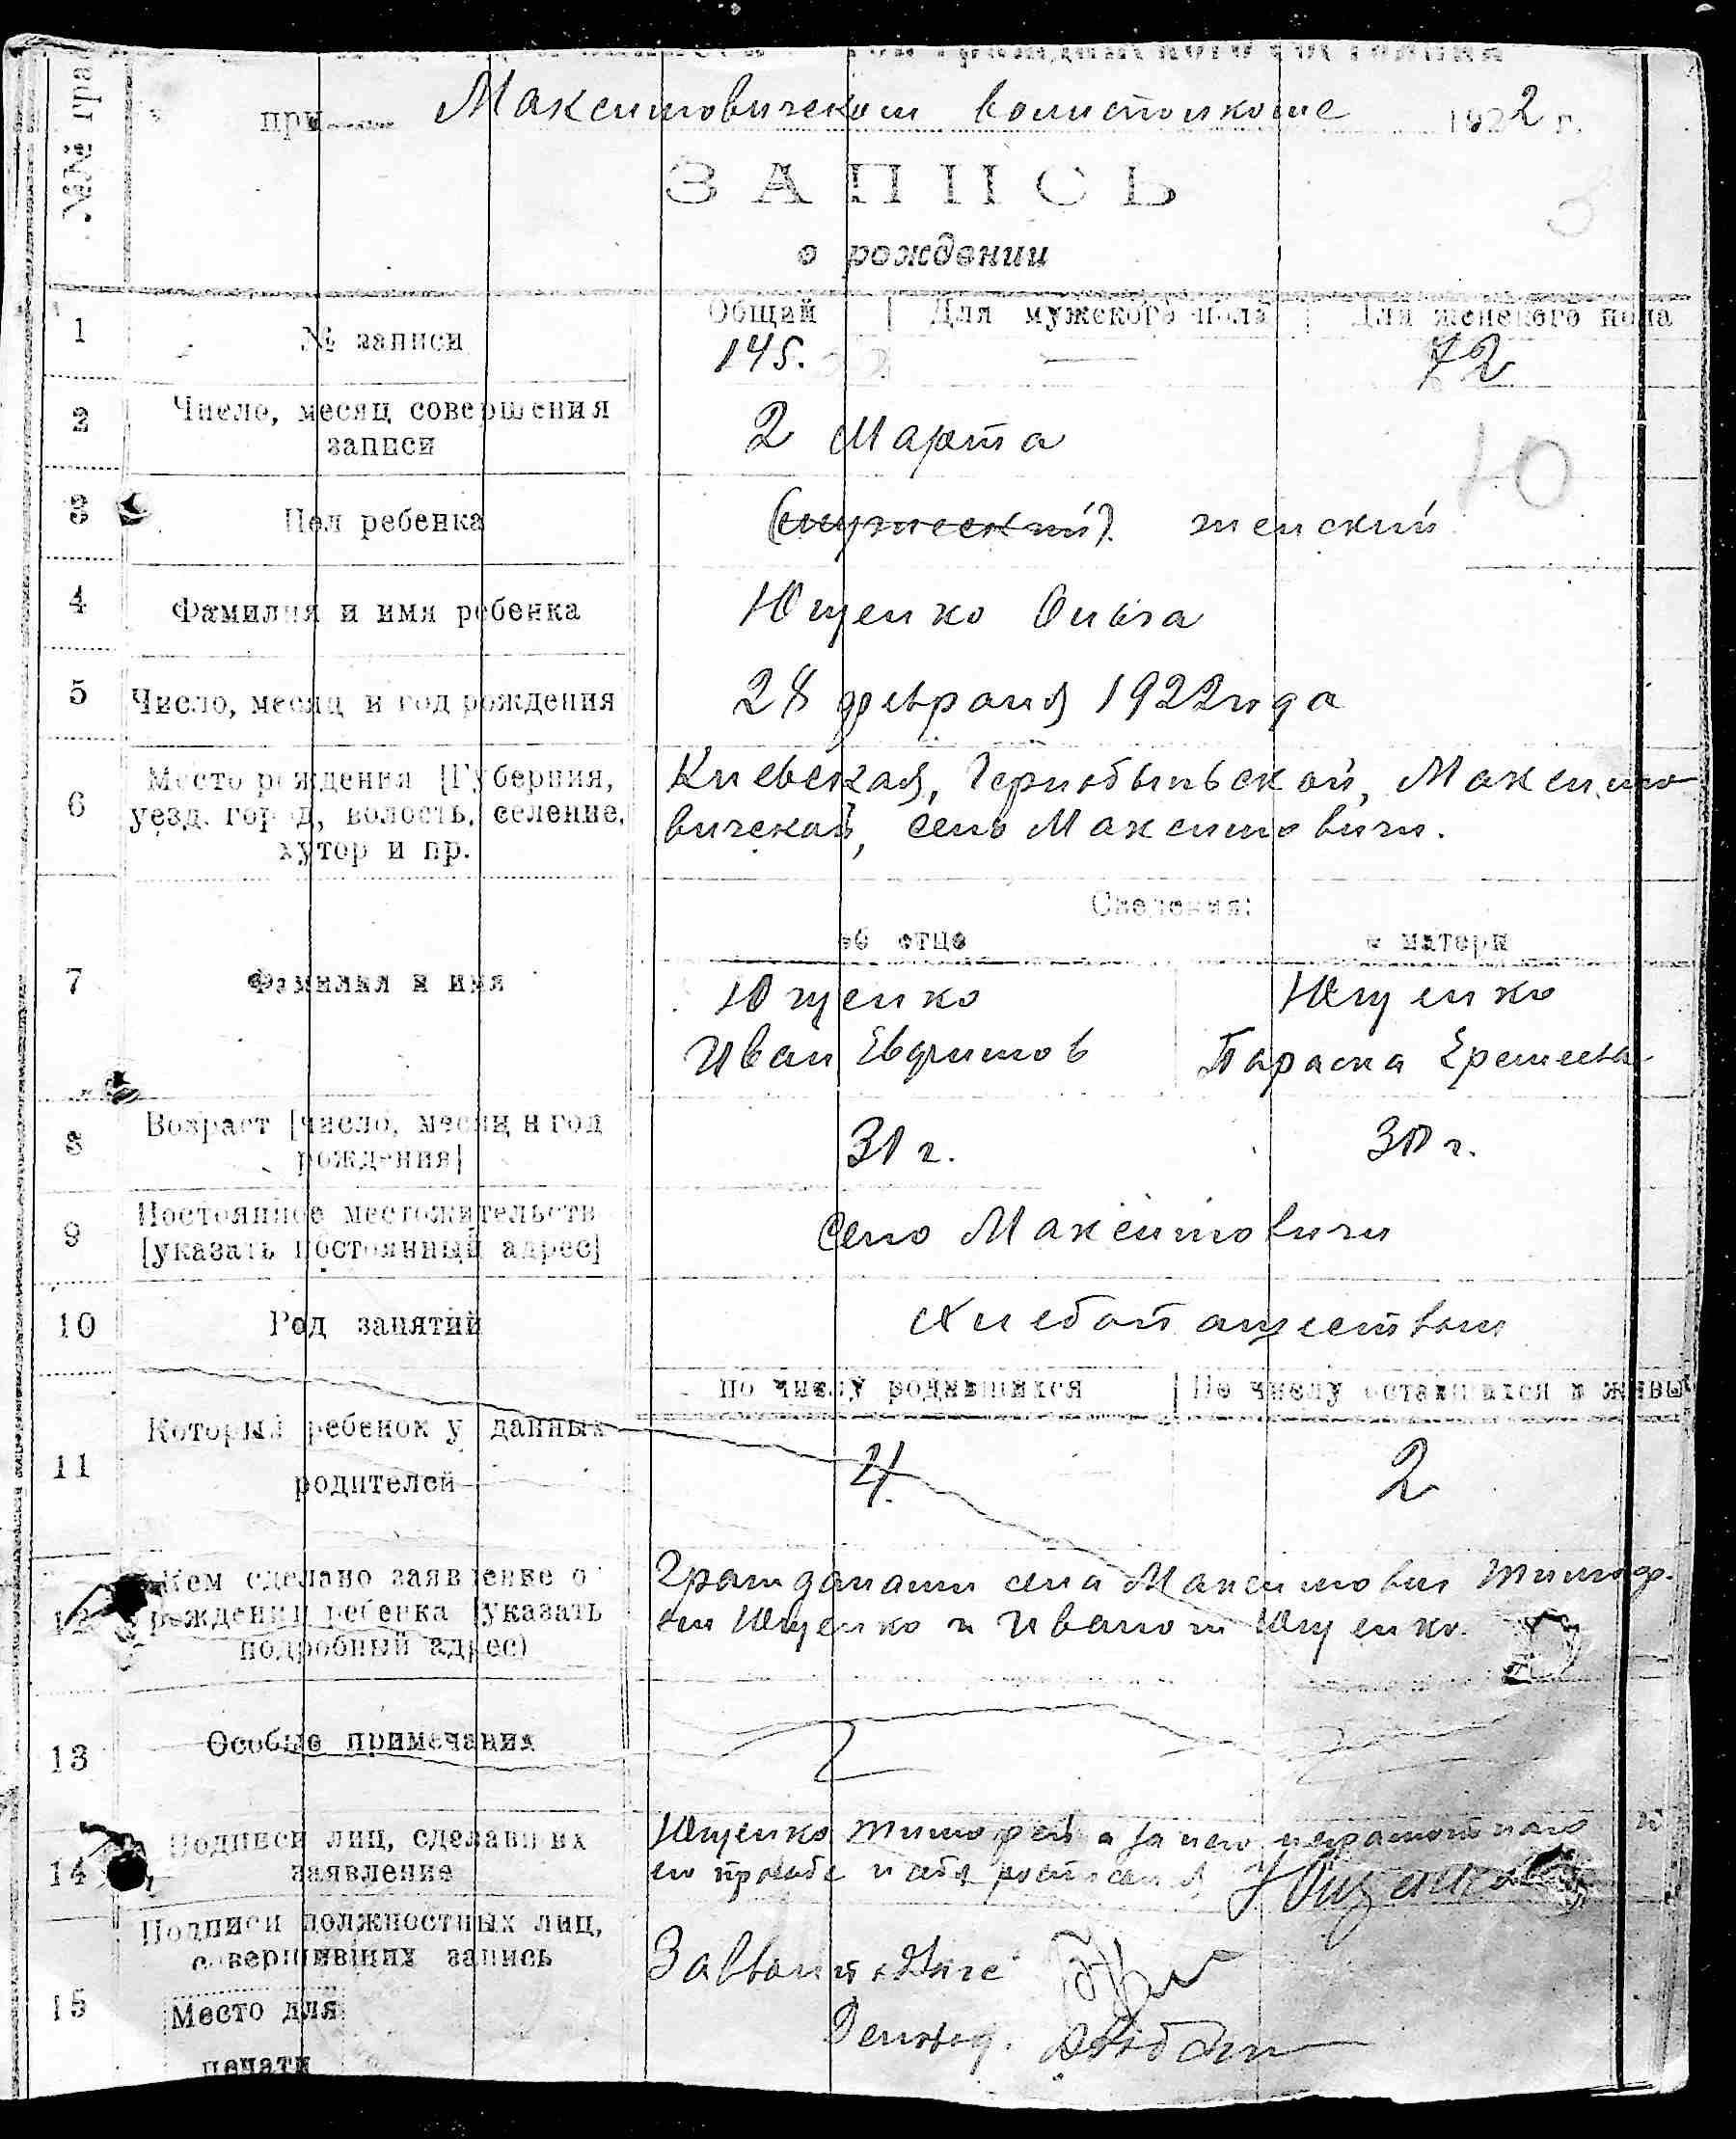 №№ гра
при Максимовическом волисполкоме 1922 г.
ЗАПИСЬ
о рождении
1 № записи Общий Для мужского пола Для женского пола
145. — 72
2 Число, месяц совершения
записи 2 Марта
Ю
3 Пол ребенка (мужеский). женский
4 Фамилия и имя ребенка Ющенко Ольга
5 Число, месяц и год рождения 28 февраля 1922 года
6 Место рождения [Губерния,
уезд, город, волость, селение,
хутор и пр.
Киевская, Чернобыльской, Максимо-
вической, село Максимовичи.
Сведения:
об отце о матери
7 Фамилия и имя Ющенко Ющенко
Иван Евфимов Параска Еремеева
8 Возраст [число, месяц и год
рождения] 31 г. 30 г.
9 Постоянное местожительств
[указать постоянный адрес] село Максимовичи
10 Род занятий Хлебопашеством
по числу родившихся По числу оставшихся в живы
11 Который ребенок у данных
родителей 4. 2
12 Кем сделано заявление о
рождении ребенка [указать
подробный адрес)
Гражданами села Максимович Тимоф.
ем Ющенко и Иваном Ющенко.
13 Особые примечания
14 Подписи лиц, сделавших
заявление
Ющенко Тимофей а за него неграмотного и
его просьбе и себя росписался Ющенко
Подписи должностных лиц,
совершивших запись
15 Место для
печати
Делов.